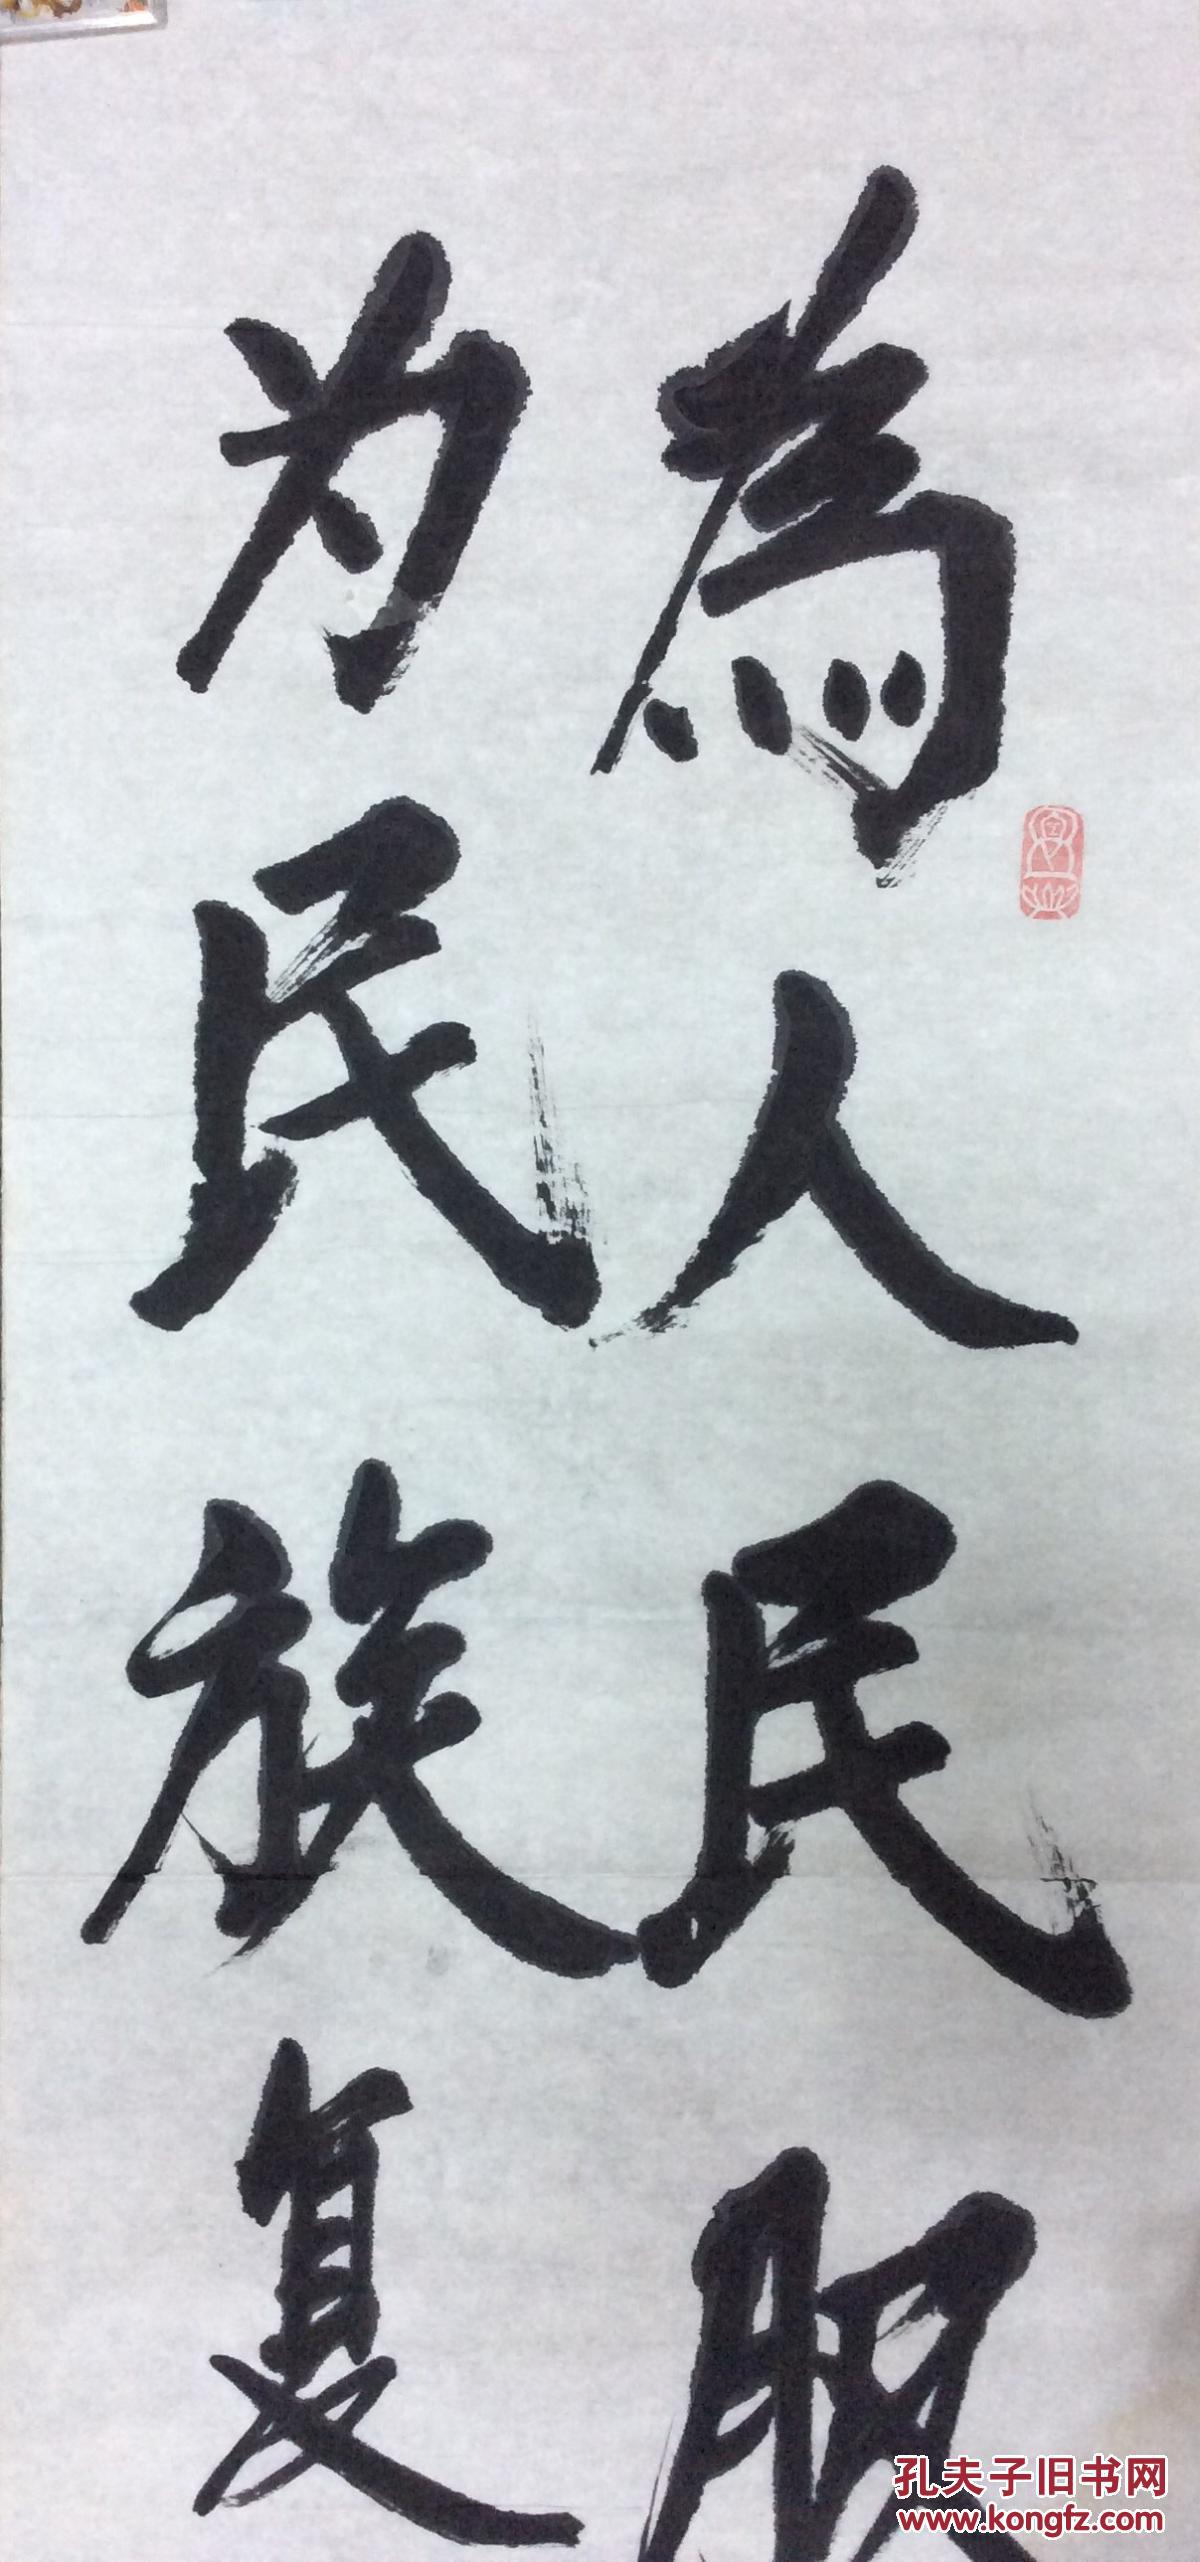 為人民服
为民族复
孔夫子旧书网
www.kongfz.com